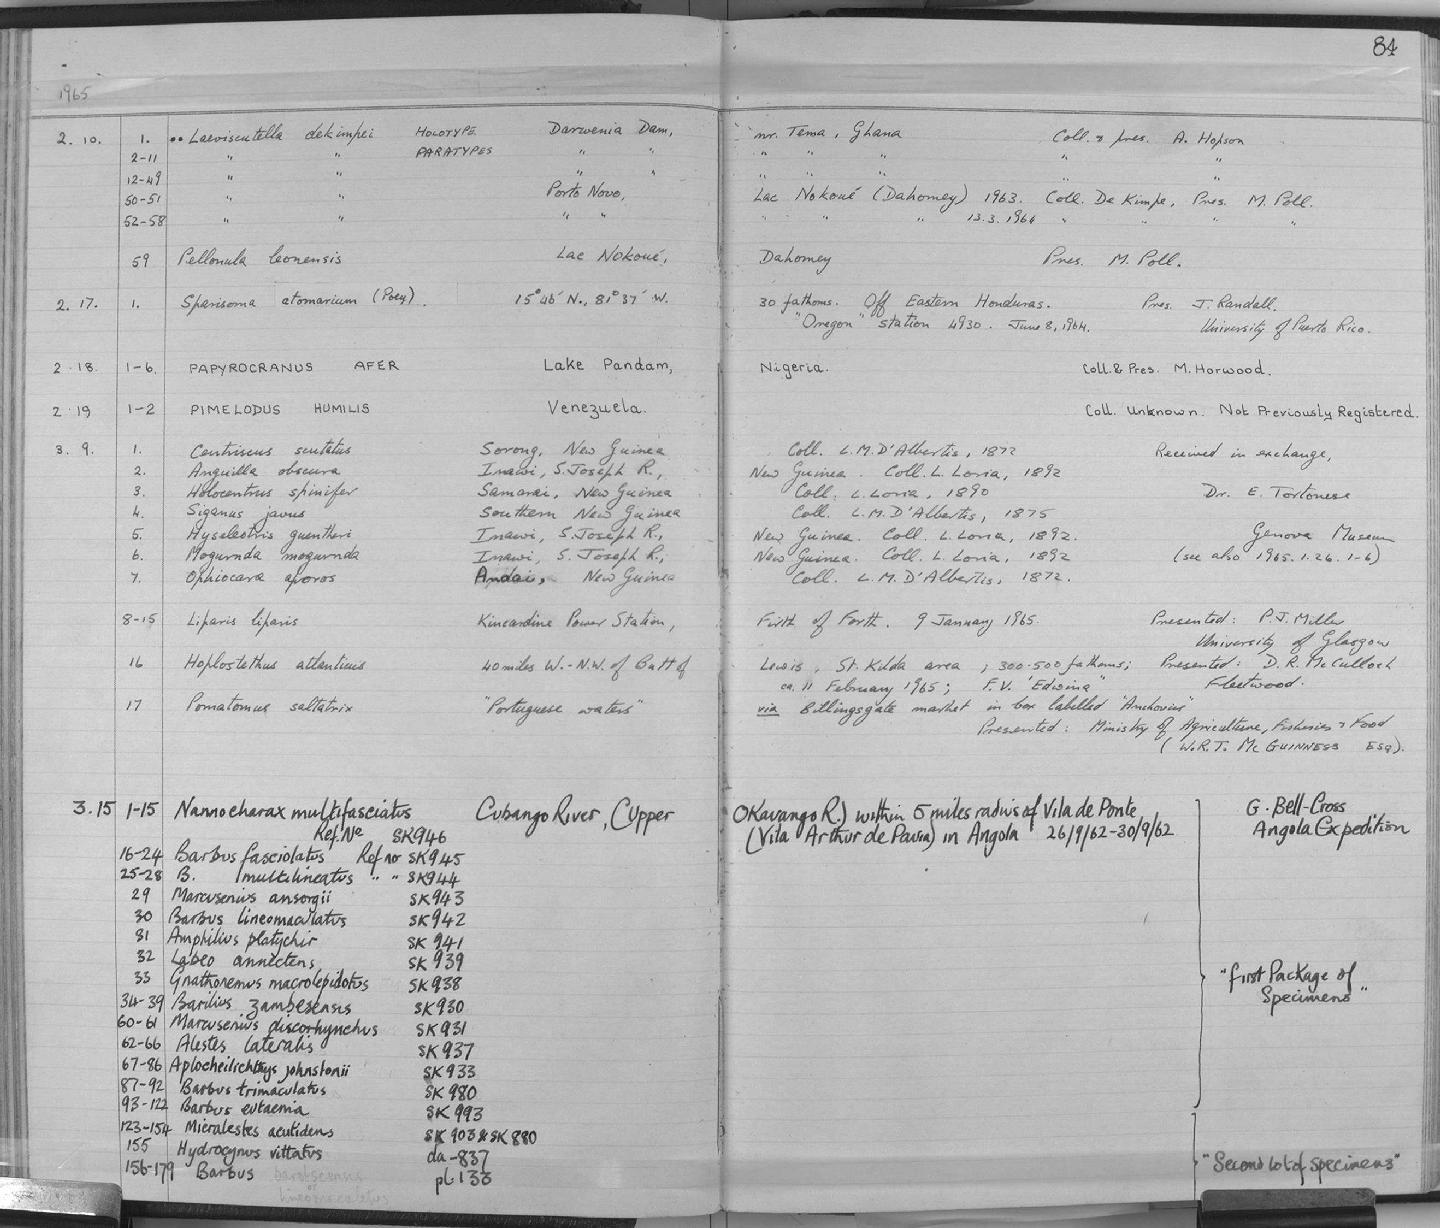 84
1965
2. 10. 1. •• Laeviscutella dekimpei HOLOTYPE Darwenia Dam, nr. Tema, Ghana Coll. & pres. A. Hopson
2-11 " " PARATYPES " " " " " " "
12-49 " " " " " " " " "
50-51 " " Porto Novo, Lac Nokoué (Dahomey) 1963. Coll. De Kimpe, Pres. M. Poll.
52-58 " " " " " " " 13.3.1964 " " " "
59 Pellonula leonensis Lac Nokoué, Dahomey Pres. M. Poll.
2. 17. 1. Sparisoma atomarium (Poey). 15° 46' N., 81° 37' W. 30 fathoms. Off Eastern Honduras. Pres. J. Randall.
"Oregon" station 4930. June 8, 1964. University of Puerto Rico.
2. 18. 1-6. PAPYROCRANUS AFER Lake Pandam, Nigeria. Coll. & Pres. M. Horwood.
2 19 1-2 PIMELODUS HUMILIS Venezuela. Coll. Unknown. Not Previously Registered.
3. 9. 1. Centriscus scutatus Sorong, New Guinea Coll. L.M. D'Albertis, 1872 Received in exchange,
2. Anguilla obscura Inawi, S. Joseph R., New Guinea. Coll. L. Loria, 1892
3. Holocentrus spinifer Samarai, New Guinea Coll. L. Loria, 1890 Dr. E. Tortonese
4. Siganus javus Southern New Guinea Coll. L.M. D'Albertis, 1875
5. Hyseleotris guentheri Inawi, S. Joseph R., New Guinea. Coll. L. Loria, 1892. Genova Museum
6. Mogurnda mogurnda Inawi, S. Joseph R., New Guinea. Coll. L. Loria, 1892 (see also 1965.1.26.1-6)
7. Ophiocara aporos Andai, New Guinea Coll. L.M. D'Albertis, 1872.
8-15 Liparis liparis Kincardine Power Station, Firth of Forth. 9 January 1965. Presented: P.J. Miller
University of Glasgow
16 Hoplostethus atlanticus 40 miles W.-N.W. of Butt of Lewis, St. Kilda area; 300-500 fathoms; Presented: D.R. McCulloch
ca. 11 February 1965; F.V. "Edwina" Fleetwood.
17 Pomatomus saltatrix "Portuguese waters" via Billingsgate market in box labelled "Anchovies"
Presented: Ministry of Agriculture, Fisheries & Food
(W.R.T. McGUINNESS Esq).
3. 15 1-15 Nannocharax multifasciatus Cubango River, (Upper Okavango R.) within 5 miles radius of Vila de Ponte G. Bell-Cross
Ref. No SK946 (Vila Arthur de Pavia) in Angola 26/9/62-30/9/62 Angola Expedition
16-24 Barbus fasciolatus Ref no SK945
25-28 B. multilineatus " " SK944
29 Marcusenius ansorgii SK943
30 Barbus lineomaculatus SK942
31 Amphilius platychir SK941
32 Labeo annectens SK939
33 Gnathonemus macrolepidotus SK938
"First Package of
Specimens"
34-39 Barilius zambesensis SK930
60-61 Marcusenius discorhynchus SK931
62-66 Alestes lateralis SK937
67-86 Aplocheilichthys johnstonii SK933
87-92 Barbus trimaculatus SK980
93-122 Barbus eutaenia SK993
123-154 Micralestes acutidens SK903 & SK880
155 Hydrocynus vittatus da-837
156-179 Barbus barotseensis pl 133 "Second lot of specimens"
or
lineomaculatus